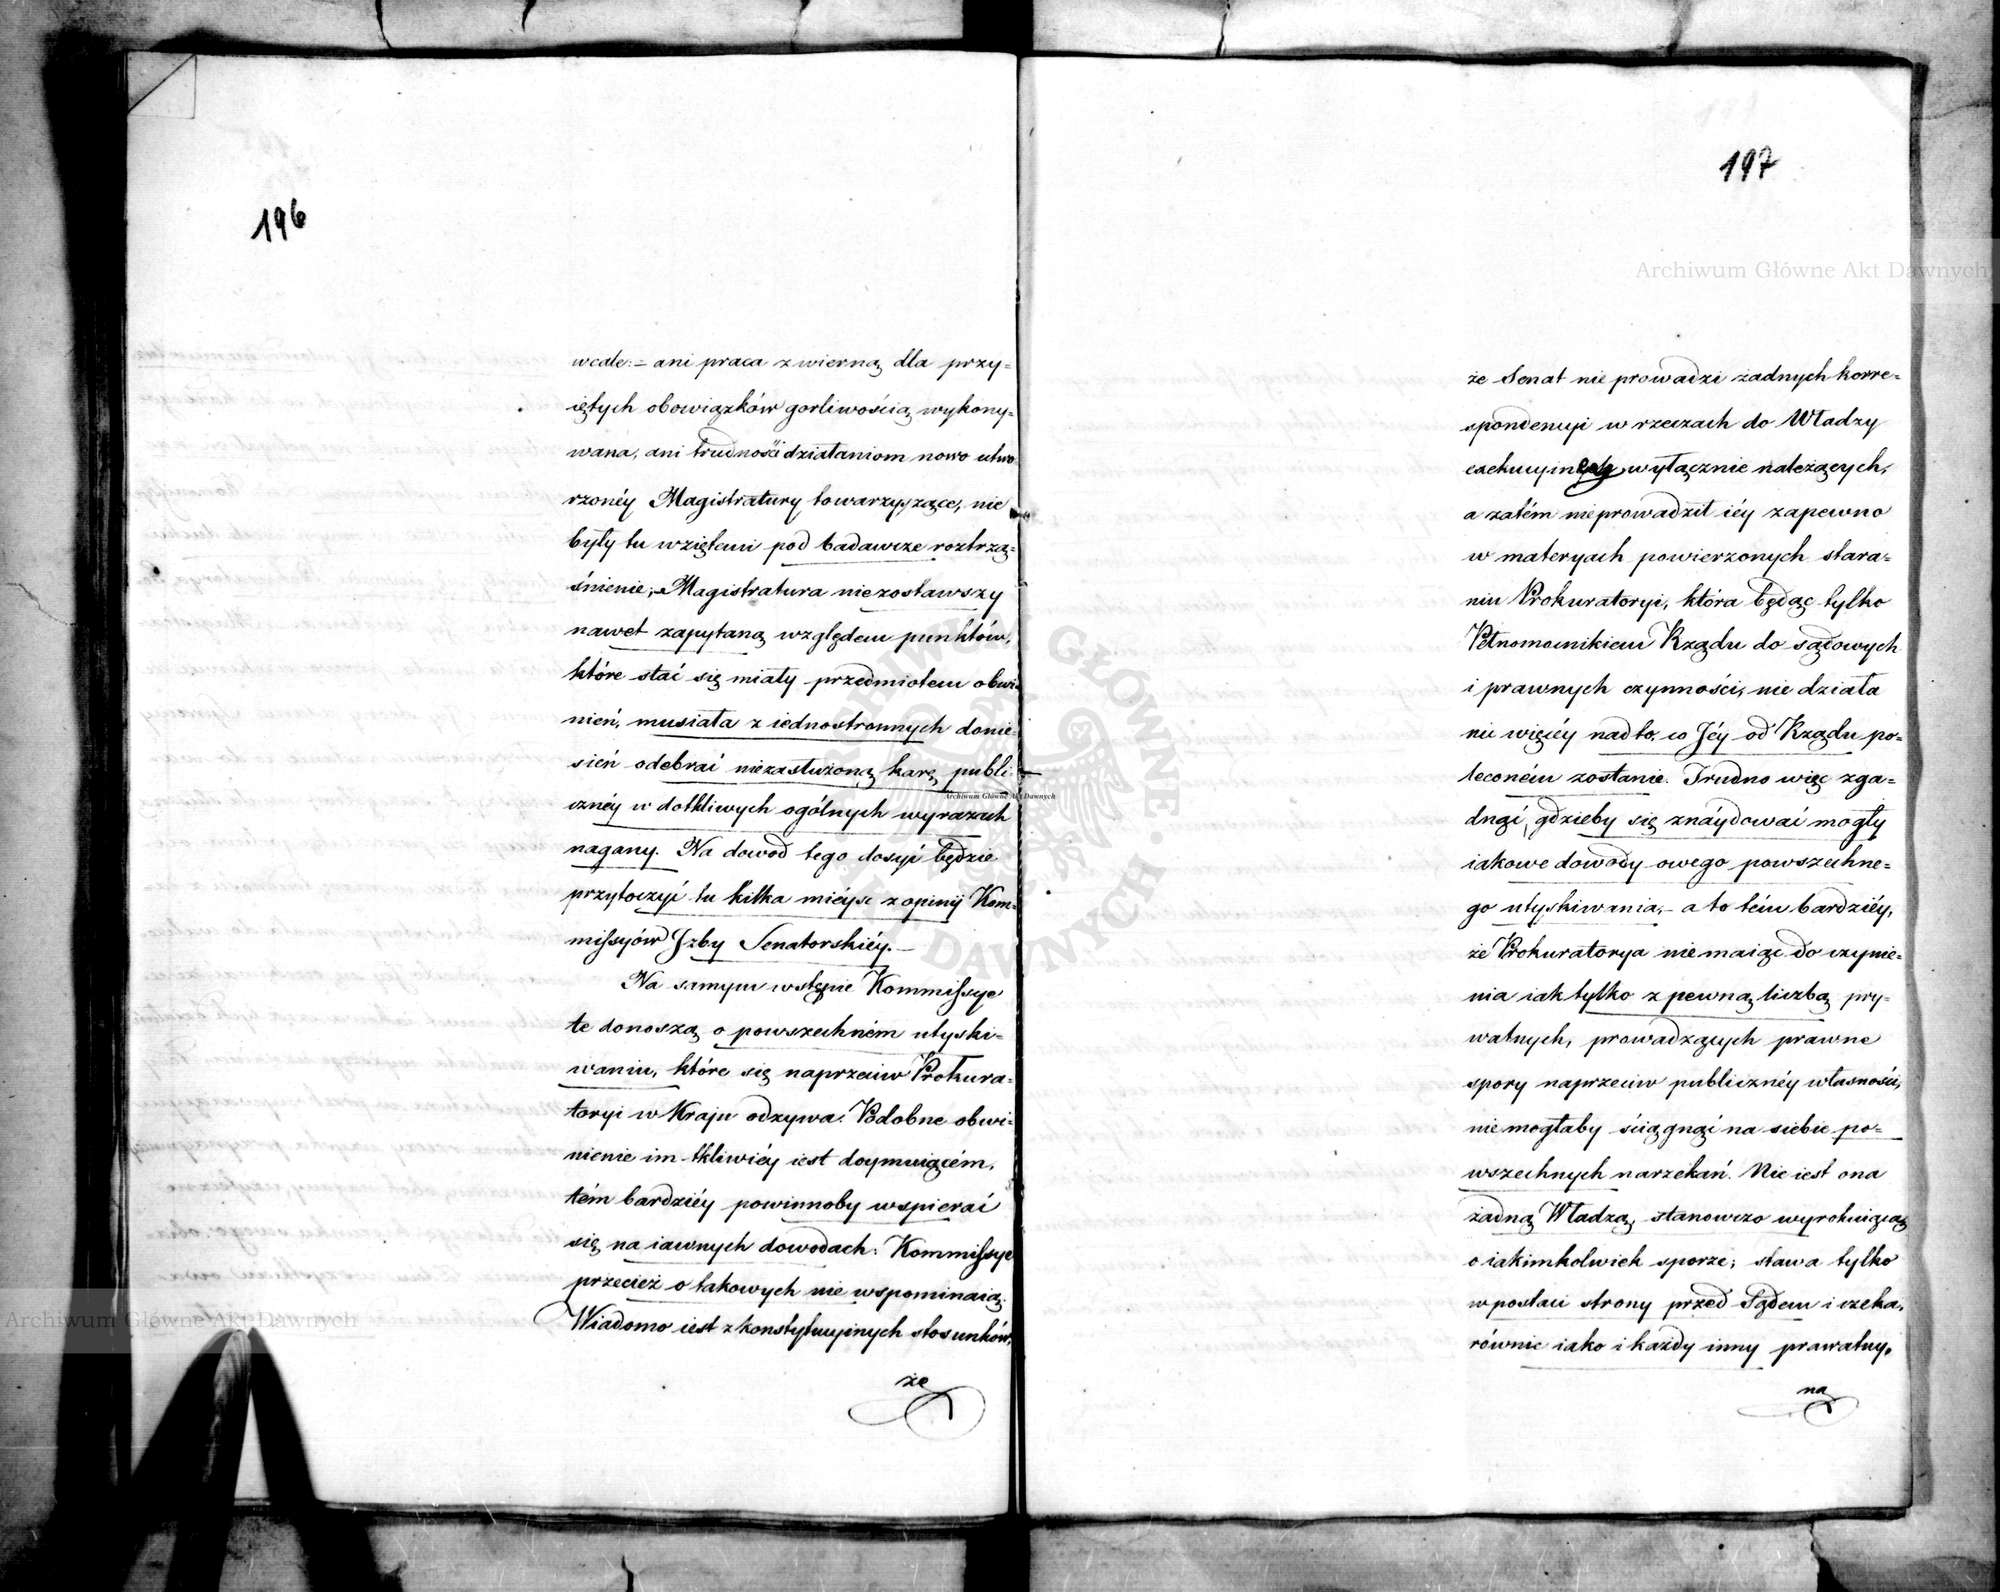 196
wcale:– ani praca z wierną dla przy-
iętych obowiązków gorliwością wykony-
wana, ani trudności działaniom nowo utwo-
rzonéy Magistratury towarzyszące, nie
były tu wziętemi pod badawcze roztrzą-
śnienie; Magistratura niezostawszy
nawet zapytaną względem punktów,
które stać się miały przedmiotem obwi-
nień, musiała z iednostronnych donie-
sień odebrać niezasłużoną karę publi-
cznéy w dotkliwych ogólnych wyrazach
nagany. Na dowod tego dosyć będzie
przytoczyć tu kilka mieysc z opinij Kom-
missyów Jzby Senatorskiéy.–
Na samym wstępie Kommissye
te donoszą o powszechném utyski-
waniu, które się naprzeciw Prokura-
toryi w Kraju odzywa. Podobne obwi-
nienie im tkliwiéy iest doymuiącém,
tém bardziéy powinnoby wspierać
się na iawnych dowodach: Kommissye
przecież o takowych nie wspominaią.
Wiadomo iest z konstytucyinych stosunków,
że
197
że Senat nie prowadzi żadnych korre-
spondencyi w rzeczach do Władzy
exekucyinéy wyłącznie należących,
a zatém nieprowadził iéy zapewno
w materyach powierzonych stara-
niu Prokuratoryi, która będąc tylko
Pełnomocnikiem Rządu do sądowych
i prawnych czynności, nie działa
nic więcéy nad to, co Jéy od Rządu po-
leconém zostanie. Trudno więc zga-
dnąć, gdzieby się znaydować mogły
iakowe dowody owego powszechne-
go utyskiwania,– a to tém bardziéy,
że Prokuratorya nie maiąc do czynie-
nia iak tylko z pewną liczbą pry-
watnych, prowadzących prawne
spory naprzeciw publicznéy własności,
nie mogłaby ściągnąć na siebie po-
wszechnych narzekań. Nie iest ona
żadną Władzą, stanowczo wyrokuiącą
o iakimkolwiek sporze; stawa tylko
w postaci strony przed Sądem i czeka,
równie iako i każdy inny prawatny,
na
Archiwum Główne Akt Dawnych
Archiwum Główne Akt Dawnych
Archiwum Główne Akt Dawnych